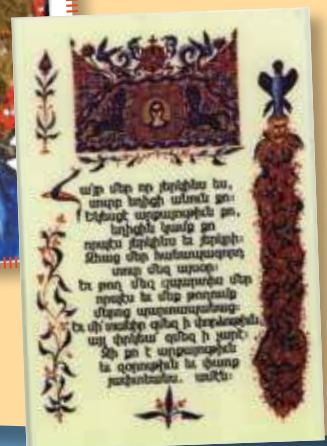 Հայր մեր որ յերկինս ես,
սուրբ եղիցի անուն քո։
Եկեսցէ արքայութիւն քո,
եղիցին կամք քո
որպէս յերկինս եւ յերկրի։
Զհաց մեր հանապազորդ
տուր մեզ այսօր։
Եւ թող մեզ զպարտիս մեր
որպէս եւ մեք թողումք
մերոց պարտապանաց։
Եւ մի տանիր զմեզ ի փորձութիւն,
այլ փրկեա՛ զմեզ ի չարէ։
Զի քո է արքայութիւն
եւ զօրութիւն եւ փառք
յաւիտեանս. ամէն։